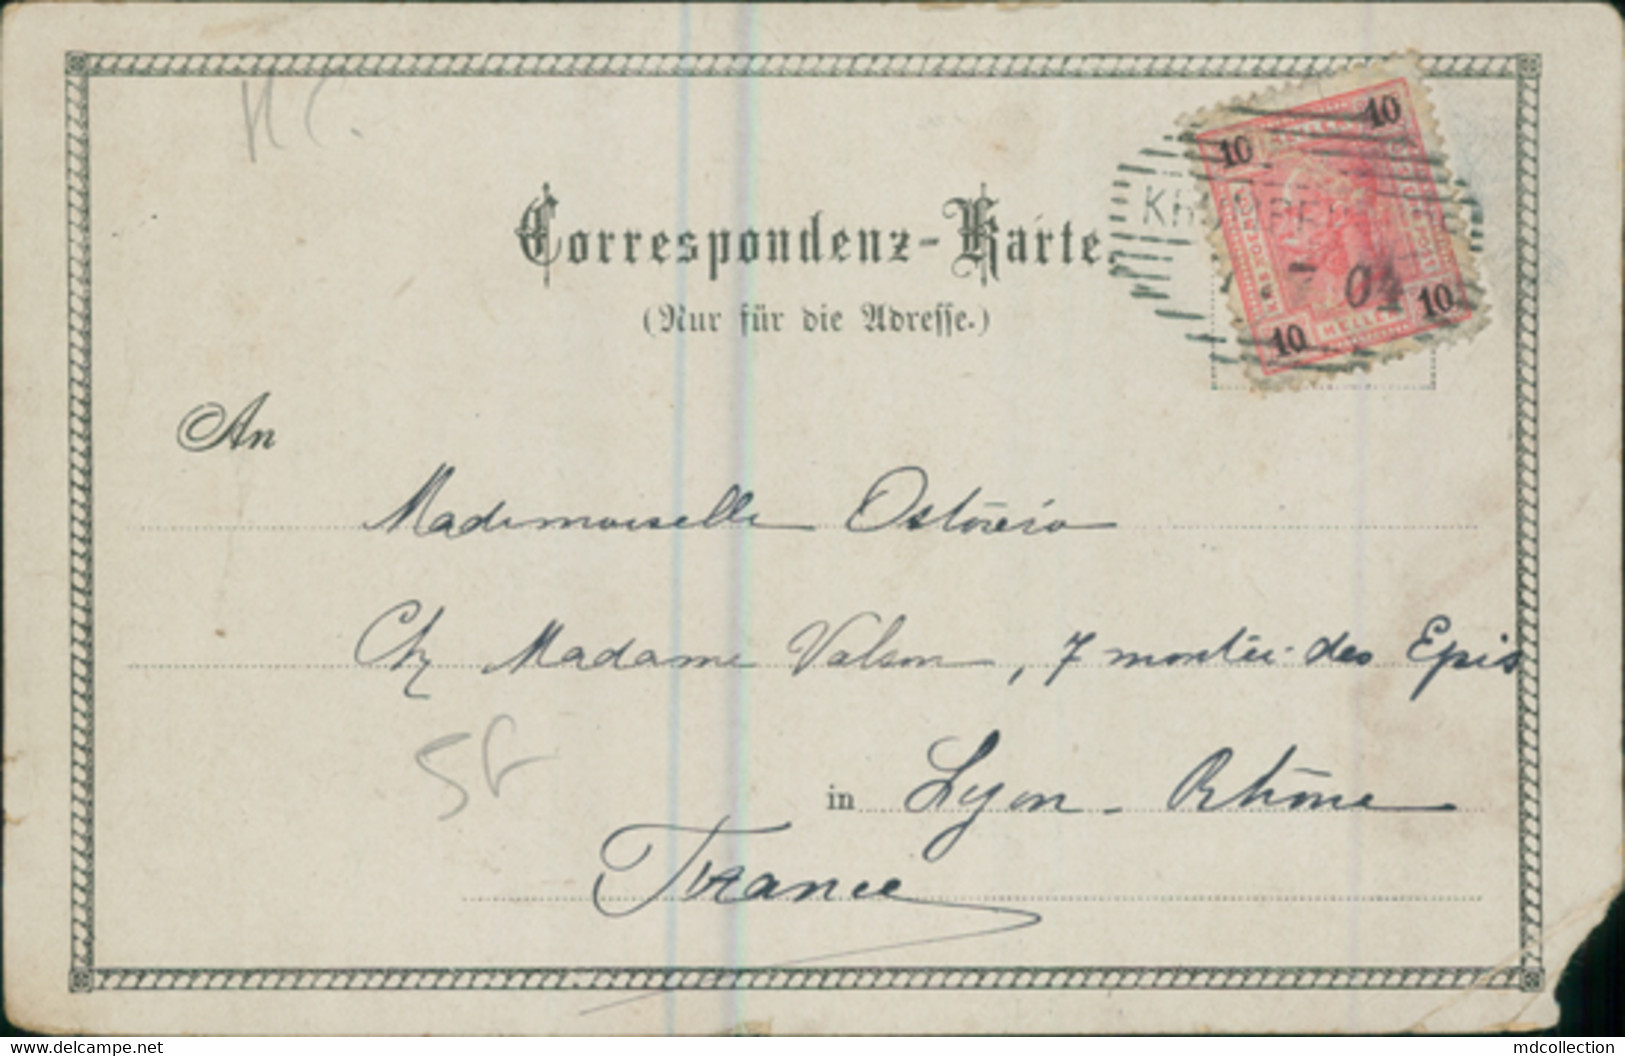 H C.
Correspondenz-Karte
(Nur für die Adresse.)
10 10
04
10 HELLER 10
An
Mademoiselle
Chez Madame Valson, 7 montée des Epis
5F
in Lyon - Rhône
France
www.delcampe.net
mdcollection